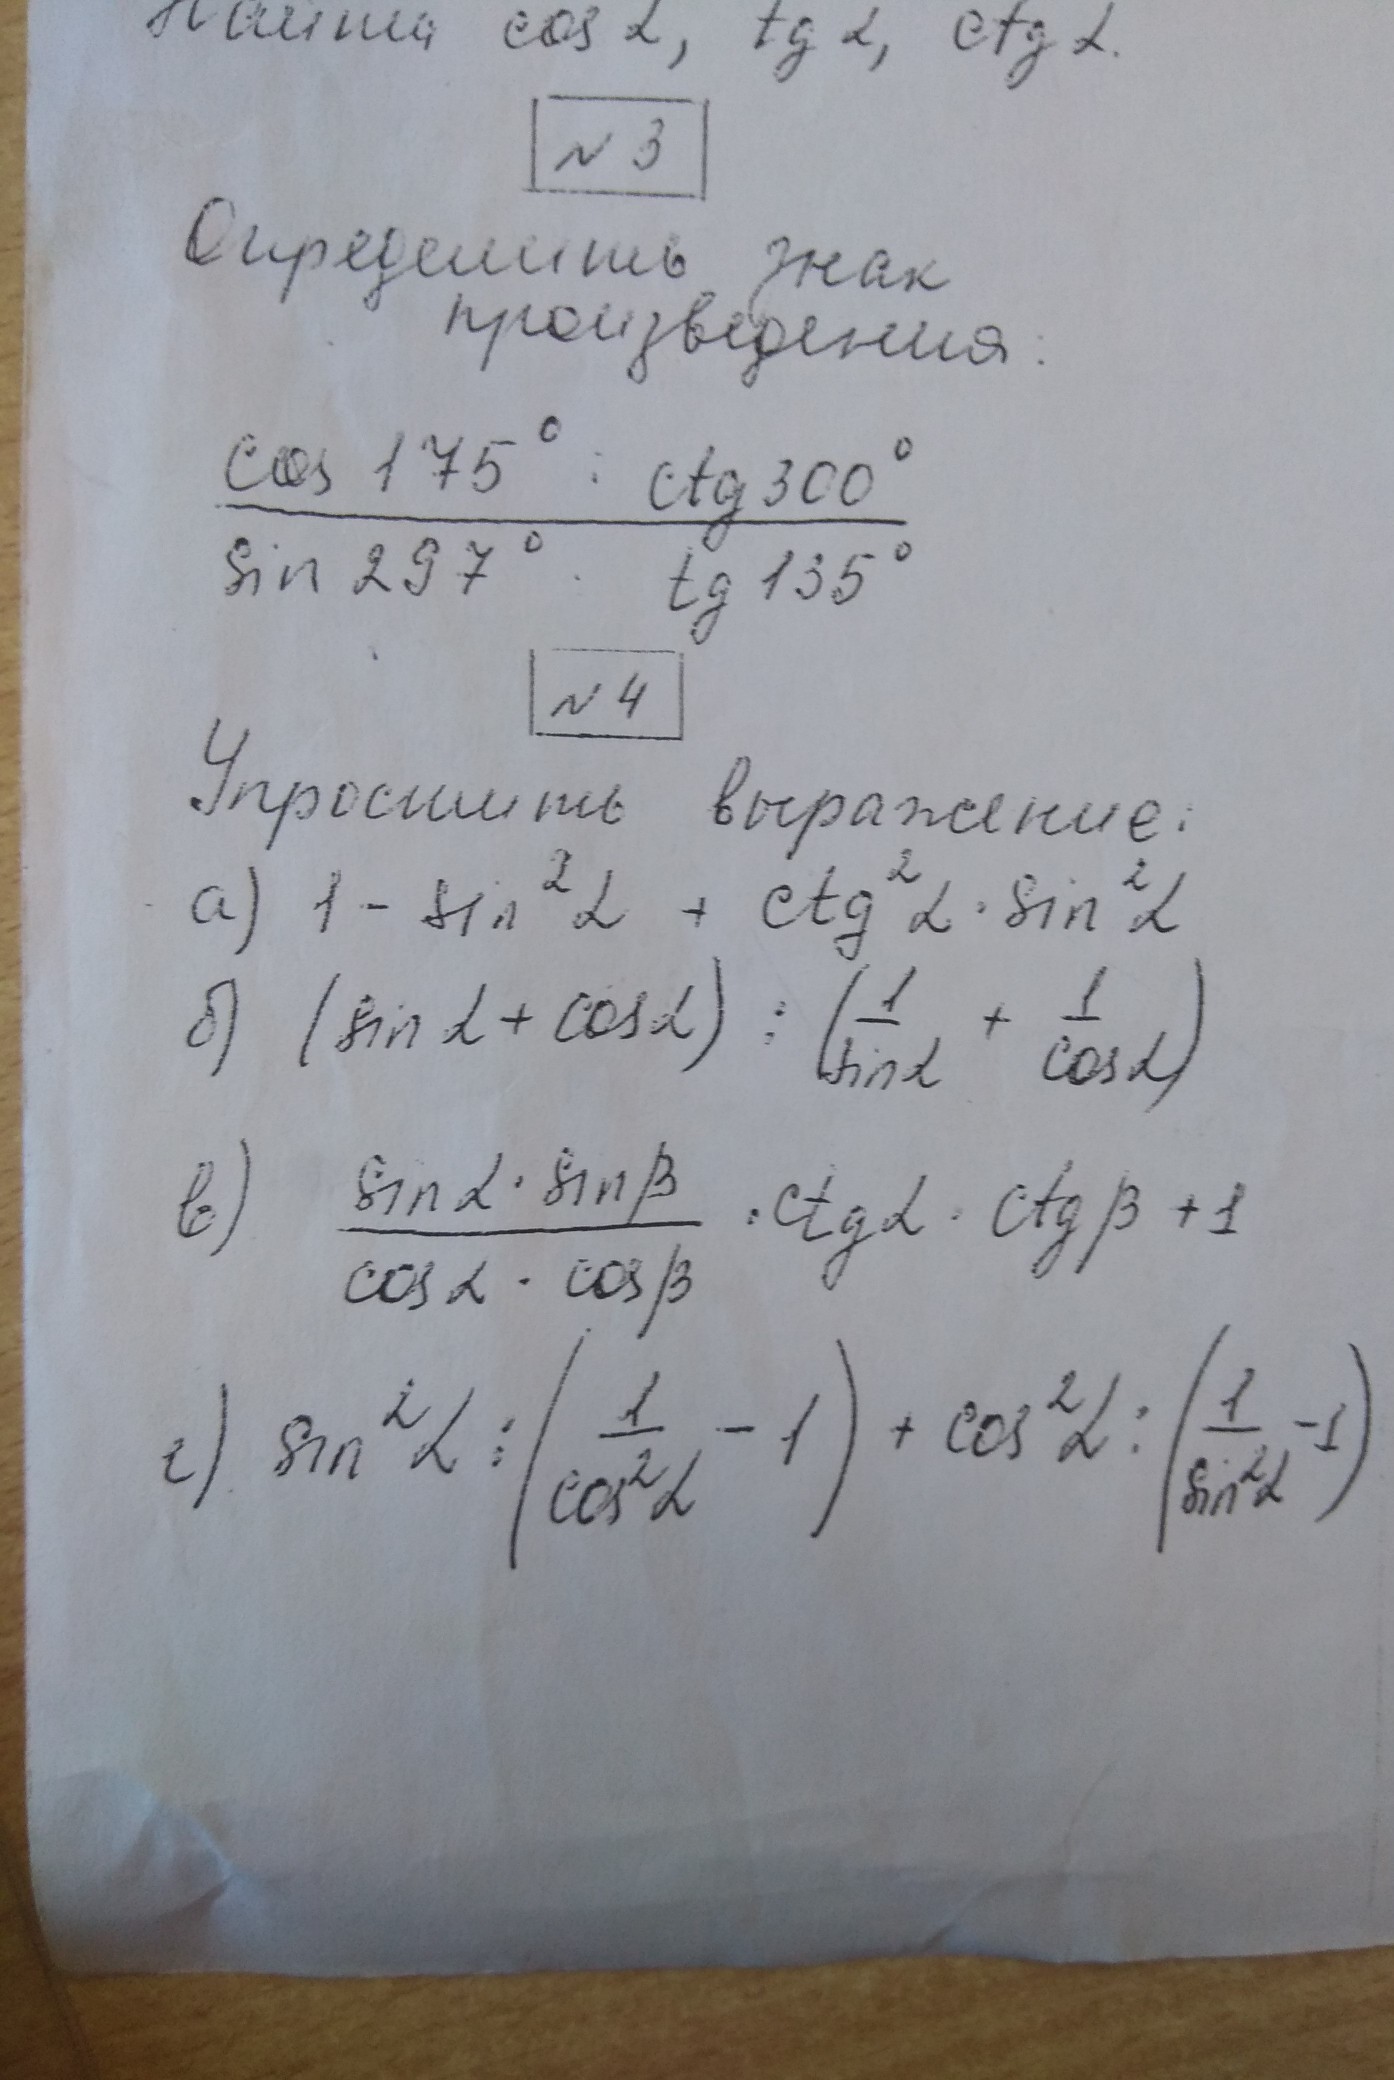 Найти cos α, tg α, ctg α.
№ 3
Определить знак
произведения:
cos 175° · ctg 300°
sin 297° · tg 135°
№ 4
Упростить выражение:
а) 1 - sin²α + ctg²α · sin²α
б) (sin α + cos α) : (1/sin α + 1/cos α)
в) sin α · sin β / cos α · cos β · ctg α · ctg β + 1
г) sin²α : (1/cos²α - 1) + cos²α : (1/sin²α - 1)